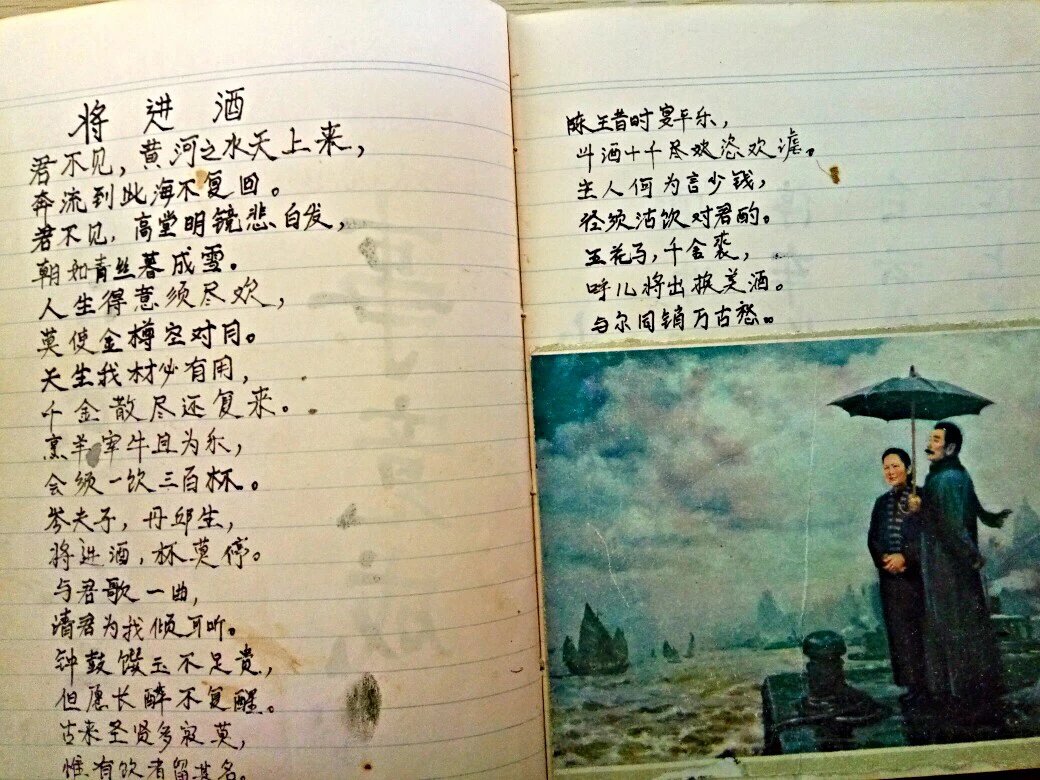 将进酒
君不见，黄河之水天上来，
奔流到此海不复回。
君不见，高堂明镜悲白发，
朝如青丝暮成雪。
人生得意须尽欢，
莫使金樽空对月。
天生我材必有用，
千金散尽还复来。
烹羊宰牛且为乐，
会须一饮三百杯。
岑夫子，丹邱生，
将进酒，杯莫停。
与君歌一曲，
请君为我倾耳听。
钟鼓馔玉不足贵，
但愿长醉不复醒。
古来圣贤多寂莫，
惟有饮者留其名。
陈王昔时宴平乐，
斗酒十千恣欢谑。
主人何为言少钱，
径须沽饮对君酌。
五花马，千金裘，
呼儿将出换美酒。
与尔同销万古愁。